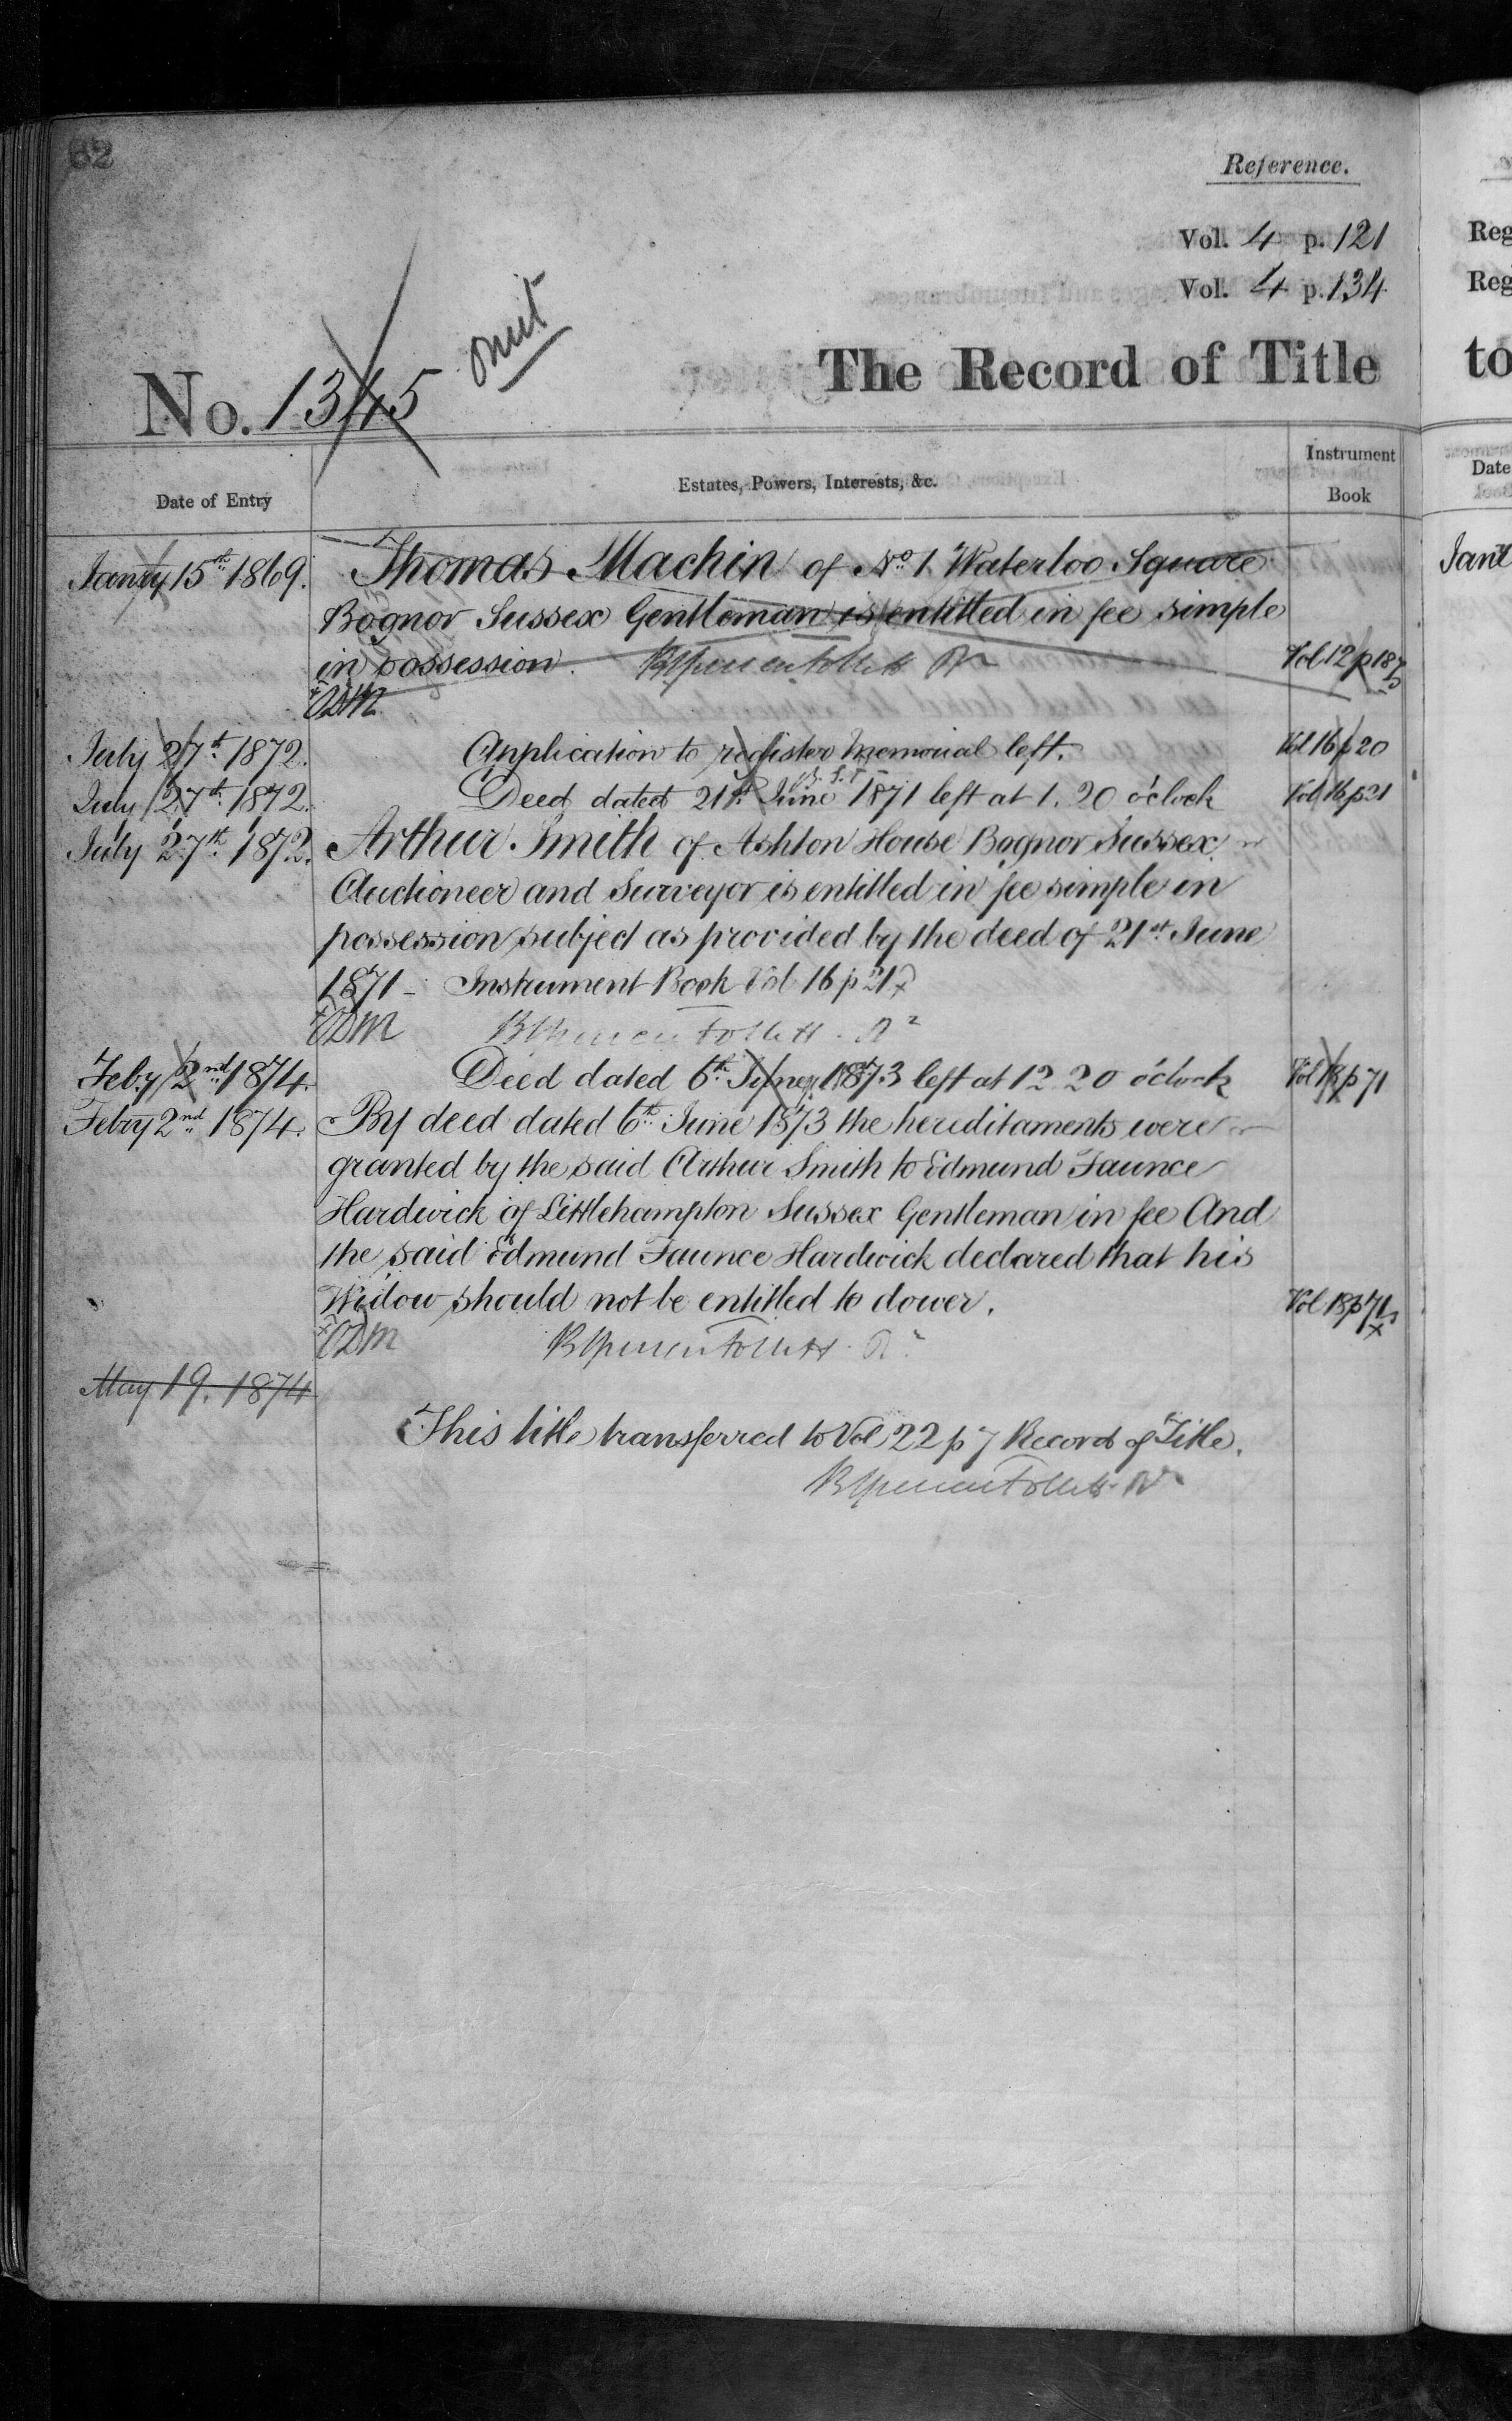 62
Reference.
Vol. 4 p. 121
Vol. 4 p. 134
omit
No. 1345
The Record of Title
Date of Entry
Estates, Powers, Interests, &c.
Instrument
Book
Jany 15th 1869. Thomas Machin of No 1 Waterloo Square
Bognor Sussex Gentleman is entitled in fee simple
in possession. Vol 12 p 187
July 27th 1872. Application to register Memorial left. Vol 16 p 20
July 27th 1872. Deed dated 21st June 1871 left at 1.20 o'clock Vol 16 p 21
July 27th 1872. Arthur Smith of Ashton House Bognor Sussex
Auctioneer and Surveyor is entitled in fee simple in
possession subject as provided by the deed of 21st June
1871 - Instrument Book Vol 16 p 21
Feby 2nd 1874. Deed dated 6th June 1873 left at 12 20 o'clock Vol 18 p 71
Febry 2nd 1874. By deed dated 6th June 1873 the hereditaments were
granted by the said Arthur Smith to Edmund Faunce
Hardwick of Littlehampton Sussex Gentleman in fee And
the said Edmund Faunce Hardwick declared that his
Widow should not be entitled to dower. Vol 18 p 71
May 19. 1874
This title transferred to Vol 22 p 7 Record of Title.
Reg
Reg
to
Date